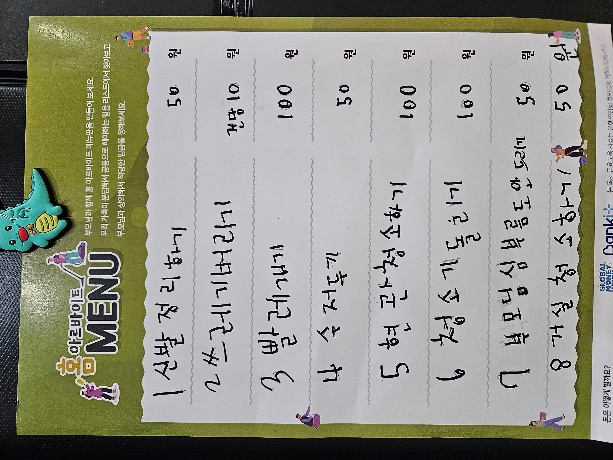 홈 아르바이트
MENU
부모님과 함께 홈 아르바이트 메뉴판을 만들어 보세요.
우리 가족이 분담해서 공동으로 해야하는 일을 리스트에서 찾아보고
부모님과 상의해서 적당한 임금을 정해보세요.
1 신발 정리하기 50 원
2 쓰레기버리기 건당 10 원
3 빨래개기 100 원
4 수저놓기 50 원
5 현관청소하기 100 원
6 청소기돌리기 100 원
7 부모님심부름도와드리기 50 원
8 거실청소하기 50 원
GLOBAL
MONEY